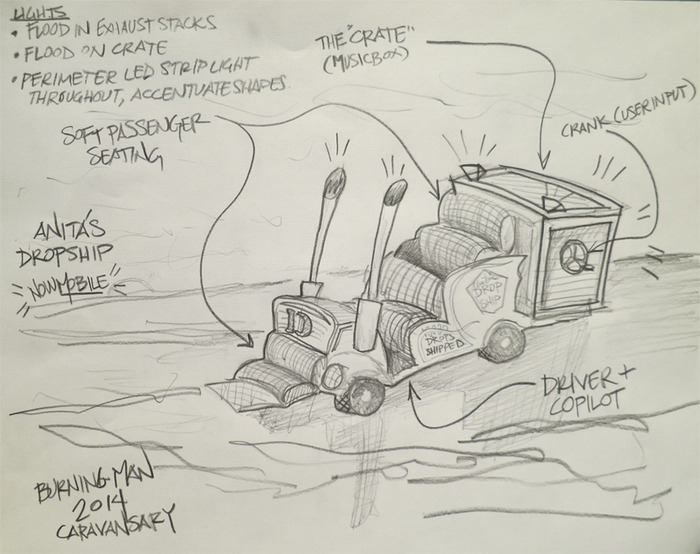 LIGHTS
• FLOOD IN EXHAUST STACKS
• FLOOD ON CRATE
• PERIMETER LED STRIP LIGHT
THROUGHOUT, ACCENTUATE SHAPES.
SOFT PASSENGER
SEATING
THE "CRATE"
(MUSICBOX)
CRANK (USER INPUT)
ANITA'S
DROPSHIP
"NOWMOBILE"
ID
DROP
SHIP
DROPS
SHIPPED
DRIVER +
COPILOT
BURNING·MAN
2014
CARAVANSARY